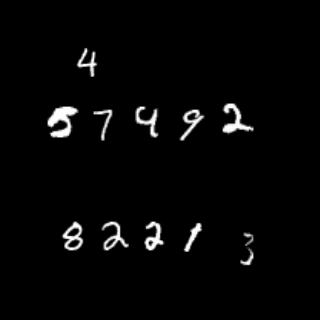 4
57492
82213